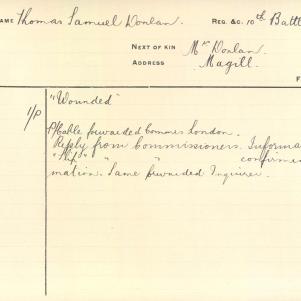 NAME Thomas Samuel Donlan. REG. &C. 10th Battl
NEXT OF KIN Mr Donlan.
ADDRESS Magill.
F
"Wounded"
1/P
P/Cable forwarded Commrs London.
Reply from Commissioners. Informa
" " confirm
mation. Same forwarded Inquirer.